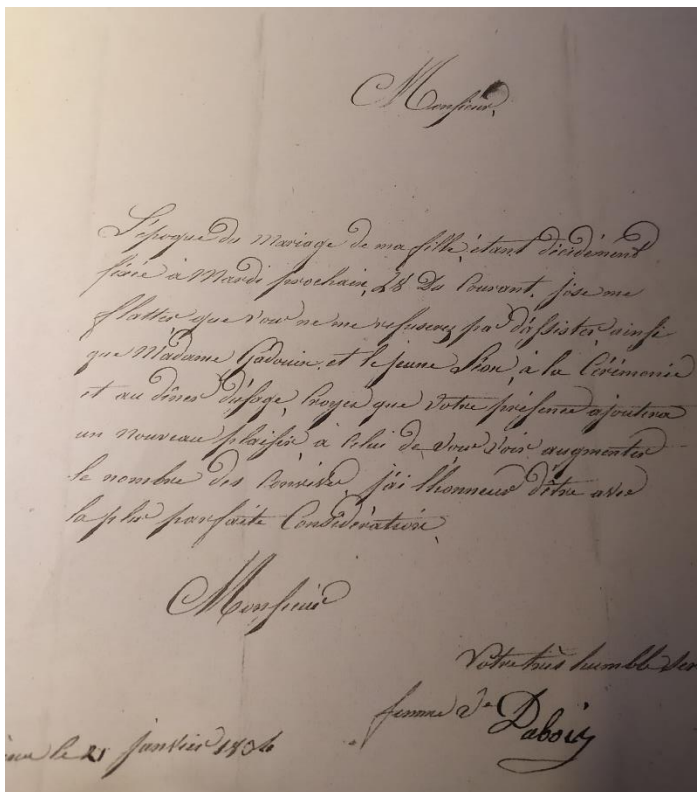 Monsieur,
L'époque du mariage de ma fille, étant décidément
fixée à Mardi prochain, 28 du Courant, j'ose me
flatter que vous ne me refuserez pas d'assister, ainsi
que Madame et le jeune Léon, à la Cérémonie
et au dîner d'usage, Croyez que Votre présence ajoutera
un nouveau plaisir, à Celui de Vous voir augmenter
le nombre des Convives, j'ai l'honneur d'être avec
la plus parfaite Considération,
Monsieur
Votre très humble Ser
femme Ve
le 21 janvier